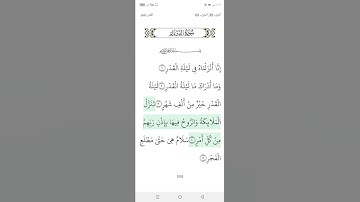 سُورَةُ القَدۡرِ
إِنَّآ أَنزَلۡنَٰهُ فِي لَيۡلَةِ ٱلۡقَدۡرِ ١
وَمَآ أَدۡرَىٰكَ مَا لَيۡلَةُ ٱلۡقَدۡرِ ٢ لَيۡلَةُ
ٱلۡقَدۡرِ خَيۡرٞ مِّنۡ أَلۡفِ شَهۡرٖ ٣ تَنَزَّلُ
ٱلۡمَلَٰٓئِكَةُ وَٱلرُّوحُ فِيهَا بِإِذۡنِ رَبِّهِم
مِّن كُلِّ أَمۡرٖ ٤ سَلَٰمٌ هِيَ حَتَّىٰ مَطۡلَعِ
ٱلۡفَجۡرِ ٥